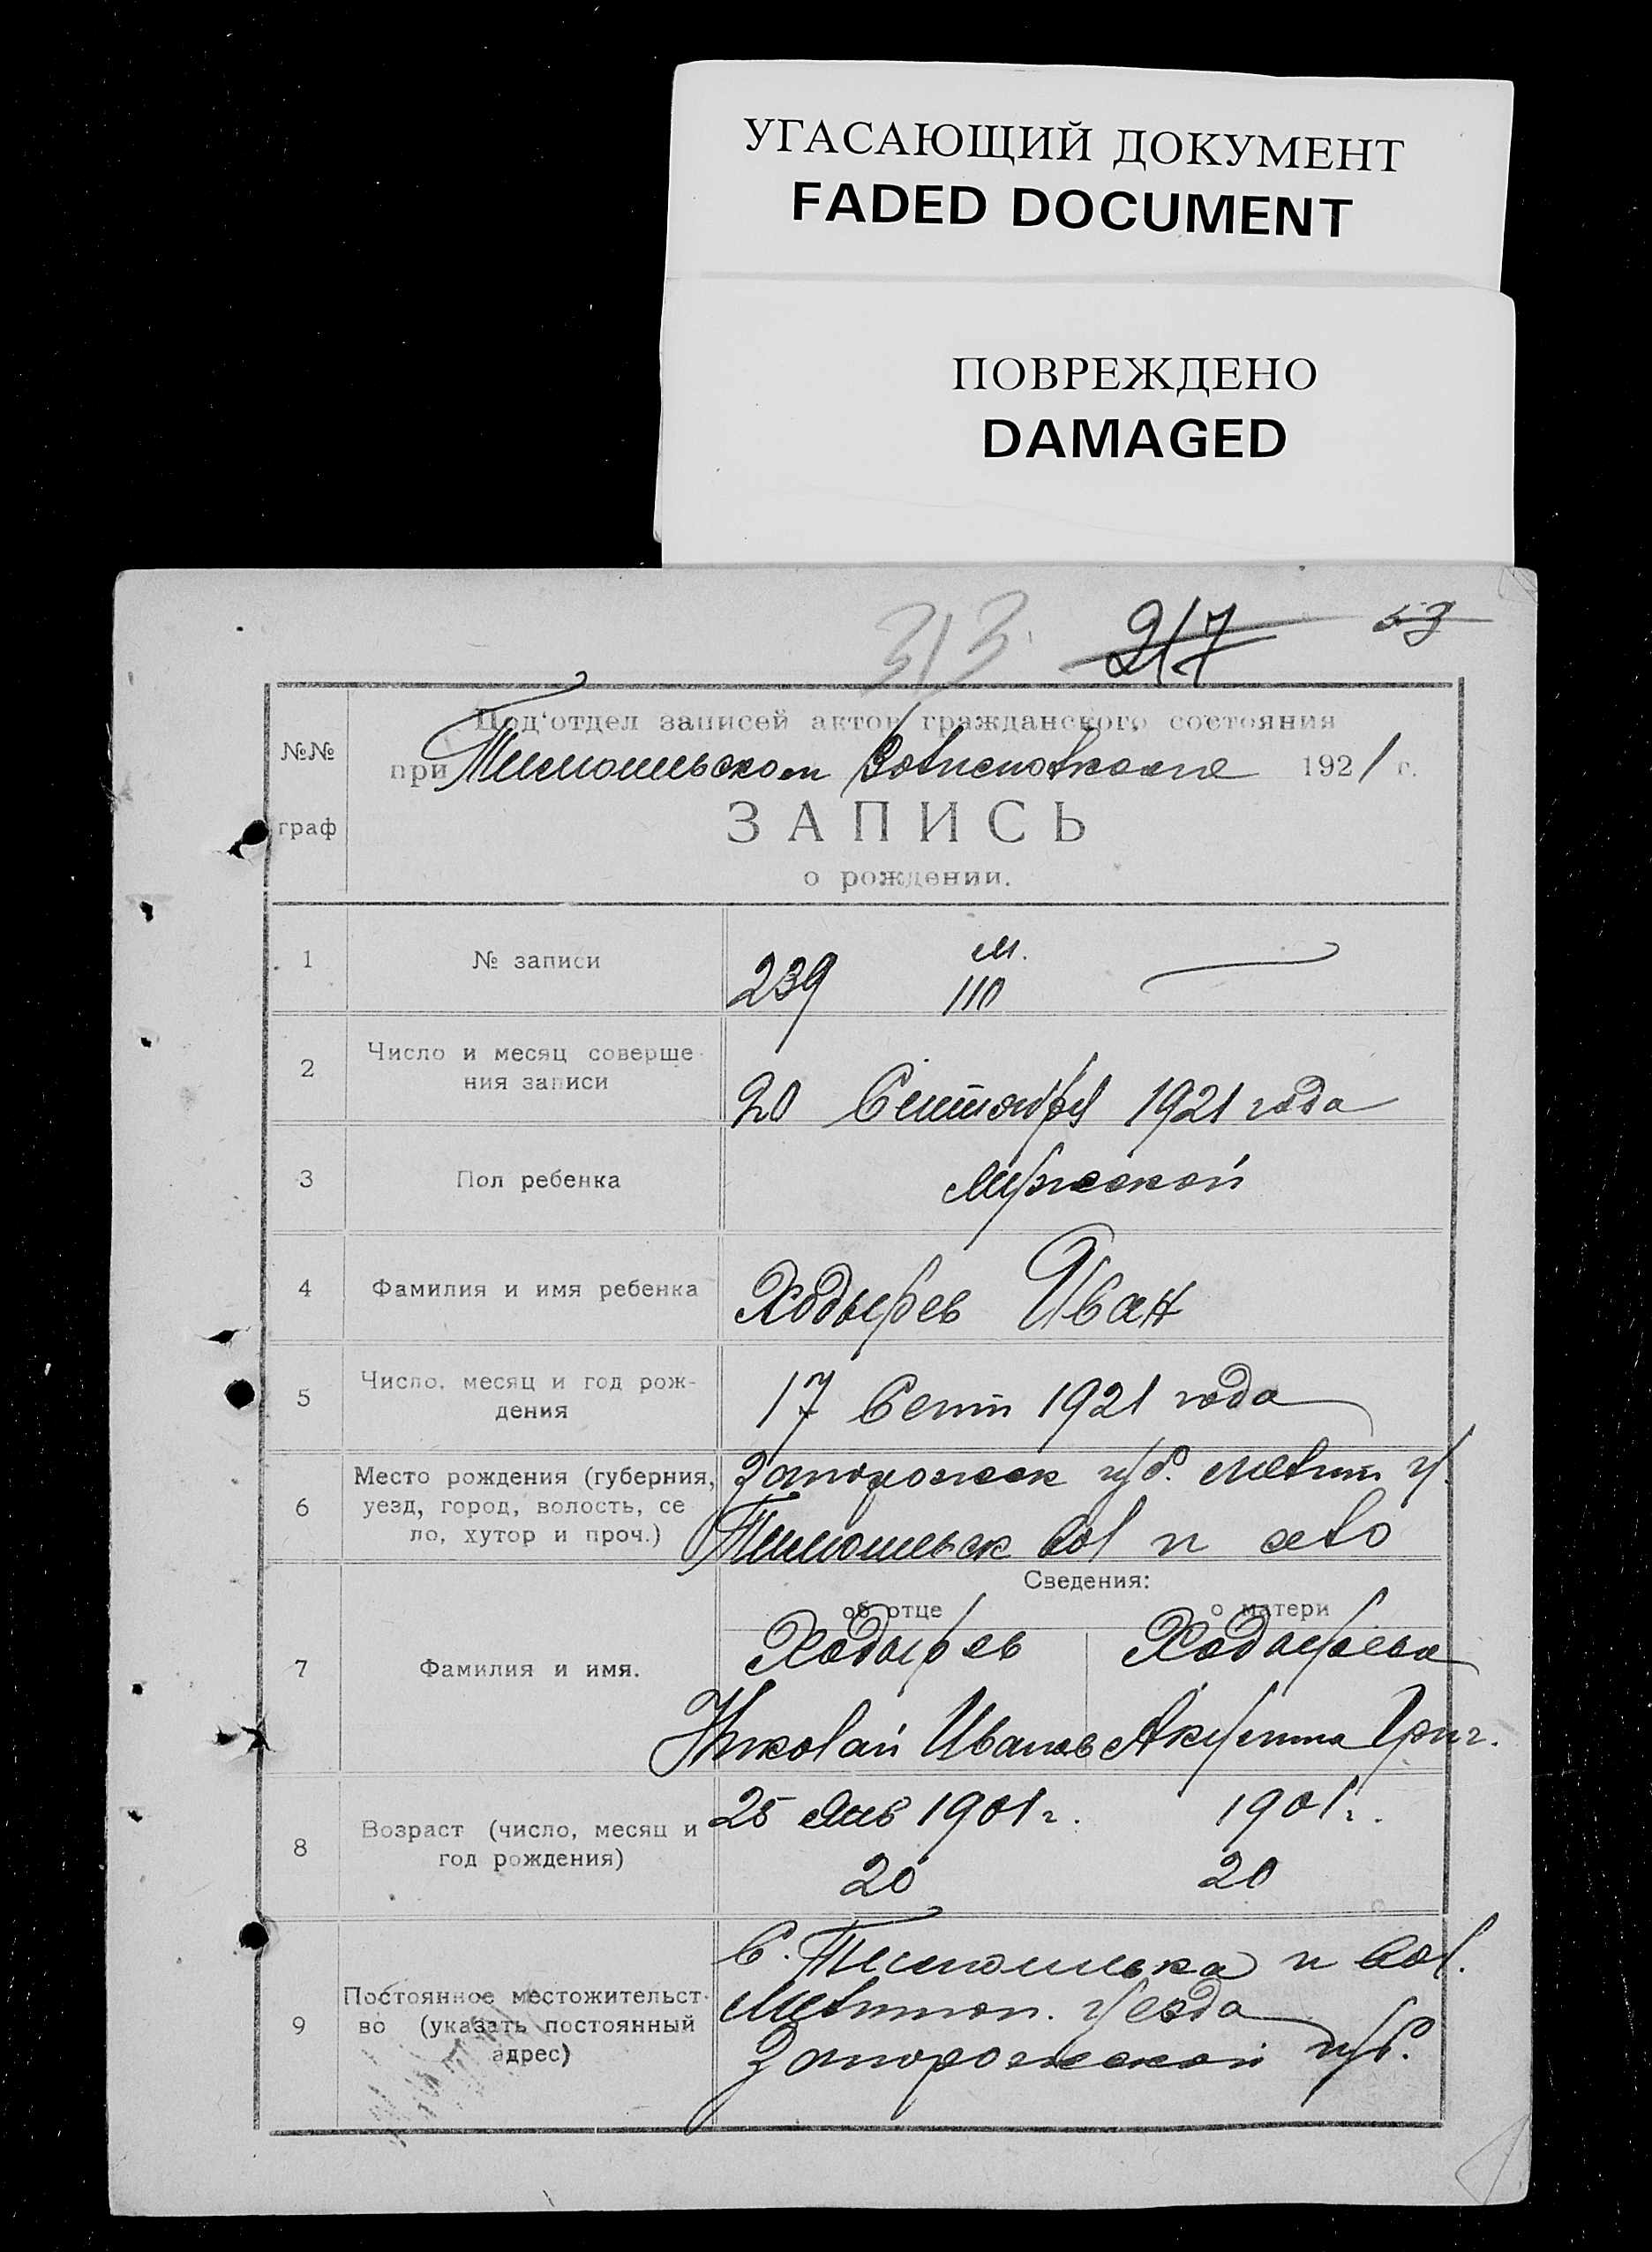 УГАСАЮЩИЙ ДОКУМЕНТ
FADED DOCUMENT
ПОВРЕЖДЕНО
DAMAGED
313. 217 53
№№ граф
Под'отдел записей актов гражданского состояния
при Тимошевском Волисполкоме 1921 г.
ЗАПИСЬ
о рождении.
1 № записи 239 м. 110
2 Число и месяц соверше-
ния записи
20 Сентября 1921 года
3 Пол ребенка мужской
4 Фамилия и имя ребенка Ходырев Иван
5 Число, месяц и год рож-
дения
17 Сент 1921 года
6 Место рождения (губерния,
уезд, город, волость, се
ло, хутор и проч.)
Запорожск губ. Мелит у.
Тимошевск вол и село
Сведения:
об отце о матери
7 Фамилия и имя.
Ходырев Ходырева
Николай Иванов Акулина Григ.
8 Возраст (число, месяц и
год рождения)
25 Янв 1901 г. 1901 г.
20 20
9 Постоянное местожительст-
во (указать постоянный
адрес)
С. Тимошевка и вол.
Мелитоп. уезда
Запорожской губ.